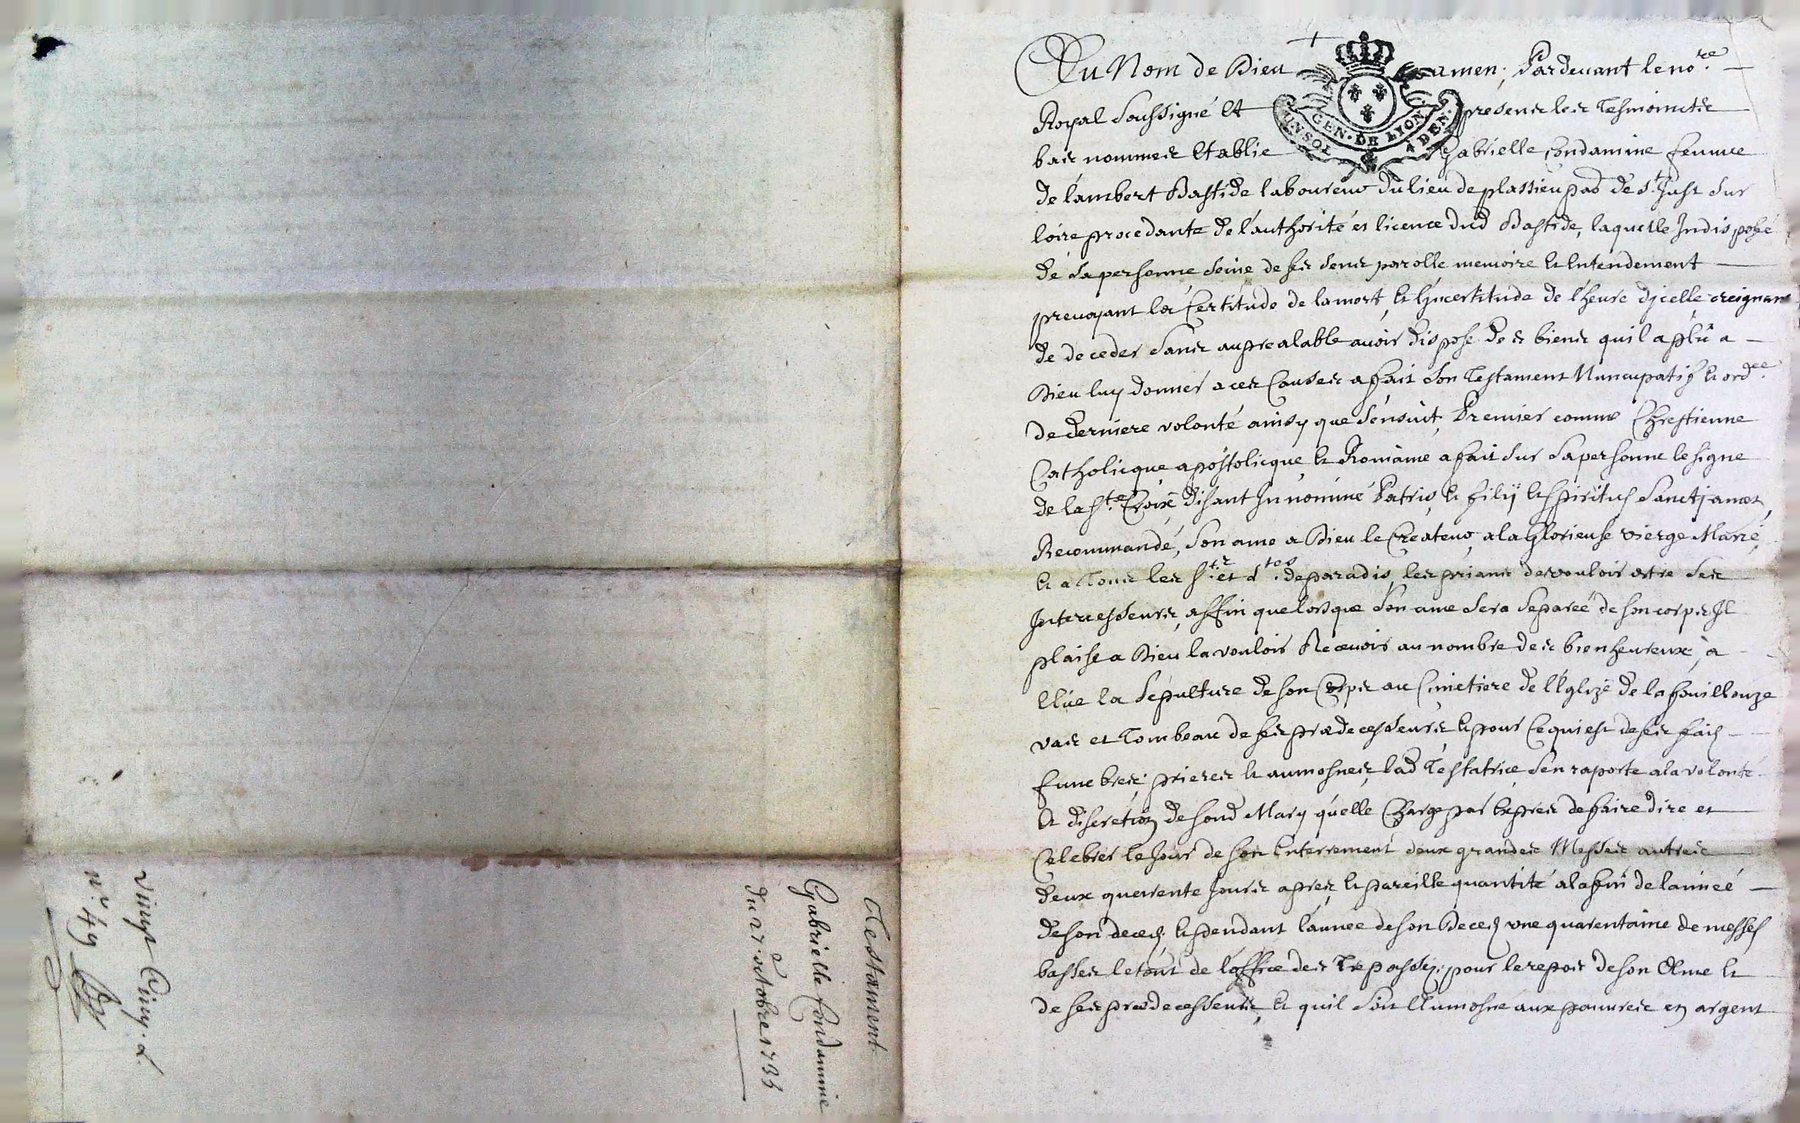 Au Nom de Dieu amen; Pardevant le no.re
Royal soussigné et presens les tesmoins
bas nommes Establie Gabrielle Condamine femme
de Lambert Bastide laboureur du lieu de plassieu par de St Just sur
loire procedante de l'authorité et licence dud Bastide, laquelle Indisposé
de sa personne seine de ses sens parolle memoire et Entendement
prevoyant la Certitude de la mort, et l'Incertitude de l'heure d'jcelle, creignant
de deceder sans au prealable avoir dispose des biens qu'il a plû a
Dieu luy donner a ces Causes a fait son Testament Nuncupatif et ord.ce
de derniere volonté ainsy que s'ensuit, Premier comme Chrestienne
Catholicque apostolicque et Romaine a fait sur sa personne le signe
de la Ste Croix disant In nomine Patris, et filij et spiritus sancti amen,
Recommandé, son ame a Dieu le Createur, a la glorieuse vierge Marie,
et a Tous les sts et stes de paradis, les priant de vouloir estre ses
Intercesseurs, affin que lorsque son ame sera separeé de son corps Il
plaise a Dieu la vouloir Recevoir au nombre des bienheureux, à
Elüe la sepulture de son Corps au Cimetiere de l'Eglize de la fouillouze
vas et Tombeau de ses prædecesseurs et pour ce qui est de ses frais
funebres prieres et aumosnes, lad Testatrice s'en raporte a la volonté
et discretion de sond Mary qu'elle Charge par Expres de faire dire et
Celebrer le Jour de son Enterrement deux grandes Messes autres
deux quarente Jours apres, et pareille quantité a la fin de l'anneé
de son deces. et pendant l'année de son Deces une quarentaine de messes
basses le tout de l'office des Trepassés, pour le repos de son Ame et
de ses prædecesseurs, et qu'il soit Aumosne aux pauvres en argent
Testament
Gabrielle Condamine
du 27e octobre 1735
vingt Cinq. L.
nº 49
INSOL GEN. DE LYON A DEN.